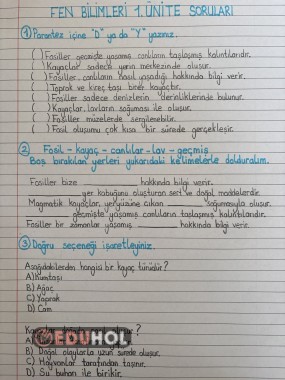 FEN BİLİMLERİ 1. ÜNİTE SORULARI
1) Parantez içine "D" ya da "Y" yazınız.
( ) Fosiller geçmişte yaşamış canlıların taşlaşmış kalıntılarıdır.
( ) Kayaçlar sadece yerin merkezinde oluşur.
( ) Fosiller, canlıların nasıl yaşadığı hakkında bilgi verir.
( ) Toprak ve kireç taşı birer kayaçtır.
( ) Fosiller sadece denizlerin derinliklerinde bulunur.
( ) Kayaçlar, lavların soğuması ile oluşur.
( ) Fosiller müzelerde sergilenebilir.
( ) Fosil oluşumu çok kısa bir sürede gerçekleşir.
2) Fosil - kayaç - canlılar - lav - geçmiş
Boş bırakılan yerleri yukarıdaki kelimelerle dolduralım.
Fosiller bize ________ hakkında bilgi verir.
________ yer kabuğunu oluşturan sert ve doğal maddelerdir.
Magmatik kayaçlar, yeryüzüne çıkan ________ soğumasıyla oluşur.
________ geçmişte yaşamış canlıların taşlaşmış kalıntılarıdır.
Fosiller bir zamanlar yaşamış ________ hakkında bilgi verir.
3) Doğru seçeneği işaretleyiniz.
Aşağıdakilerden hangisi bir kayaç türüdür?
A) Kumtaşı
B) Ağaç
C) Yaprak
D) Cam
?
EDUHOL
A)
B) Doğal olaylarla uzun sürede oluşur.
C) Hayvanlar tarafından taşınır.
D) Su buharı ile birikir.